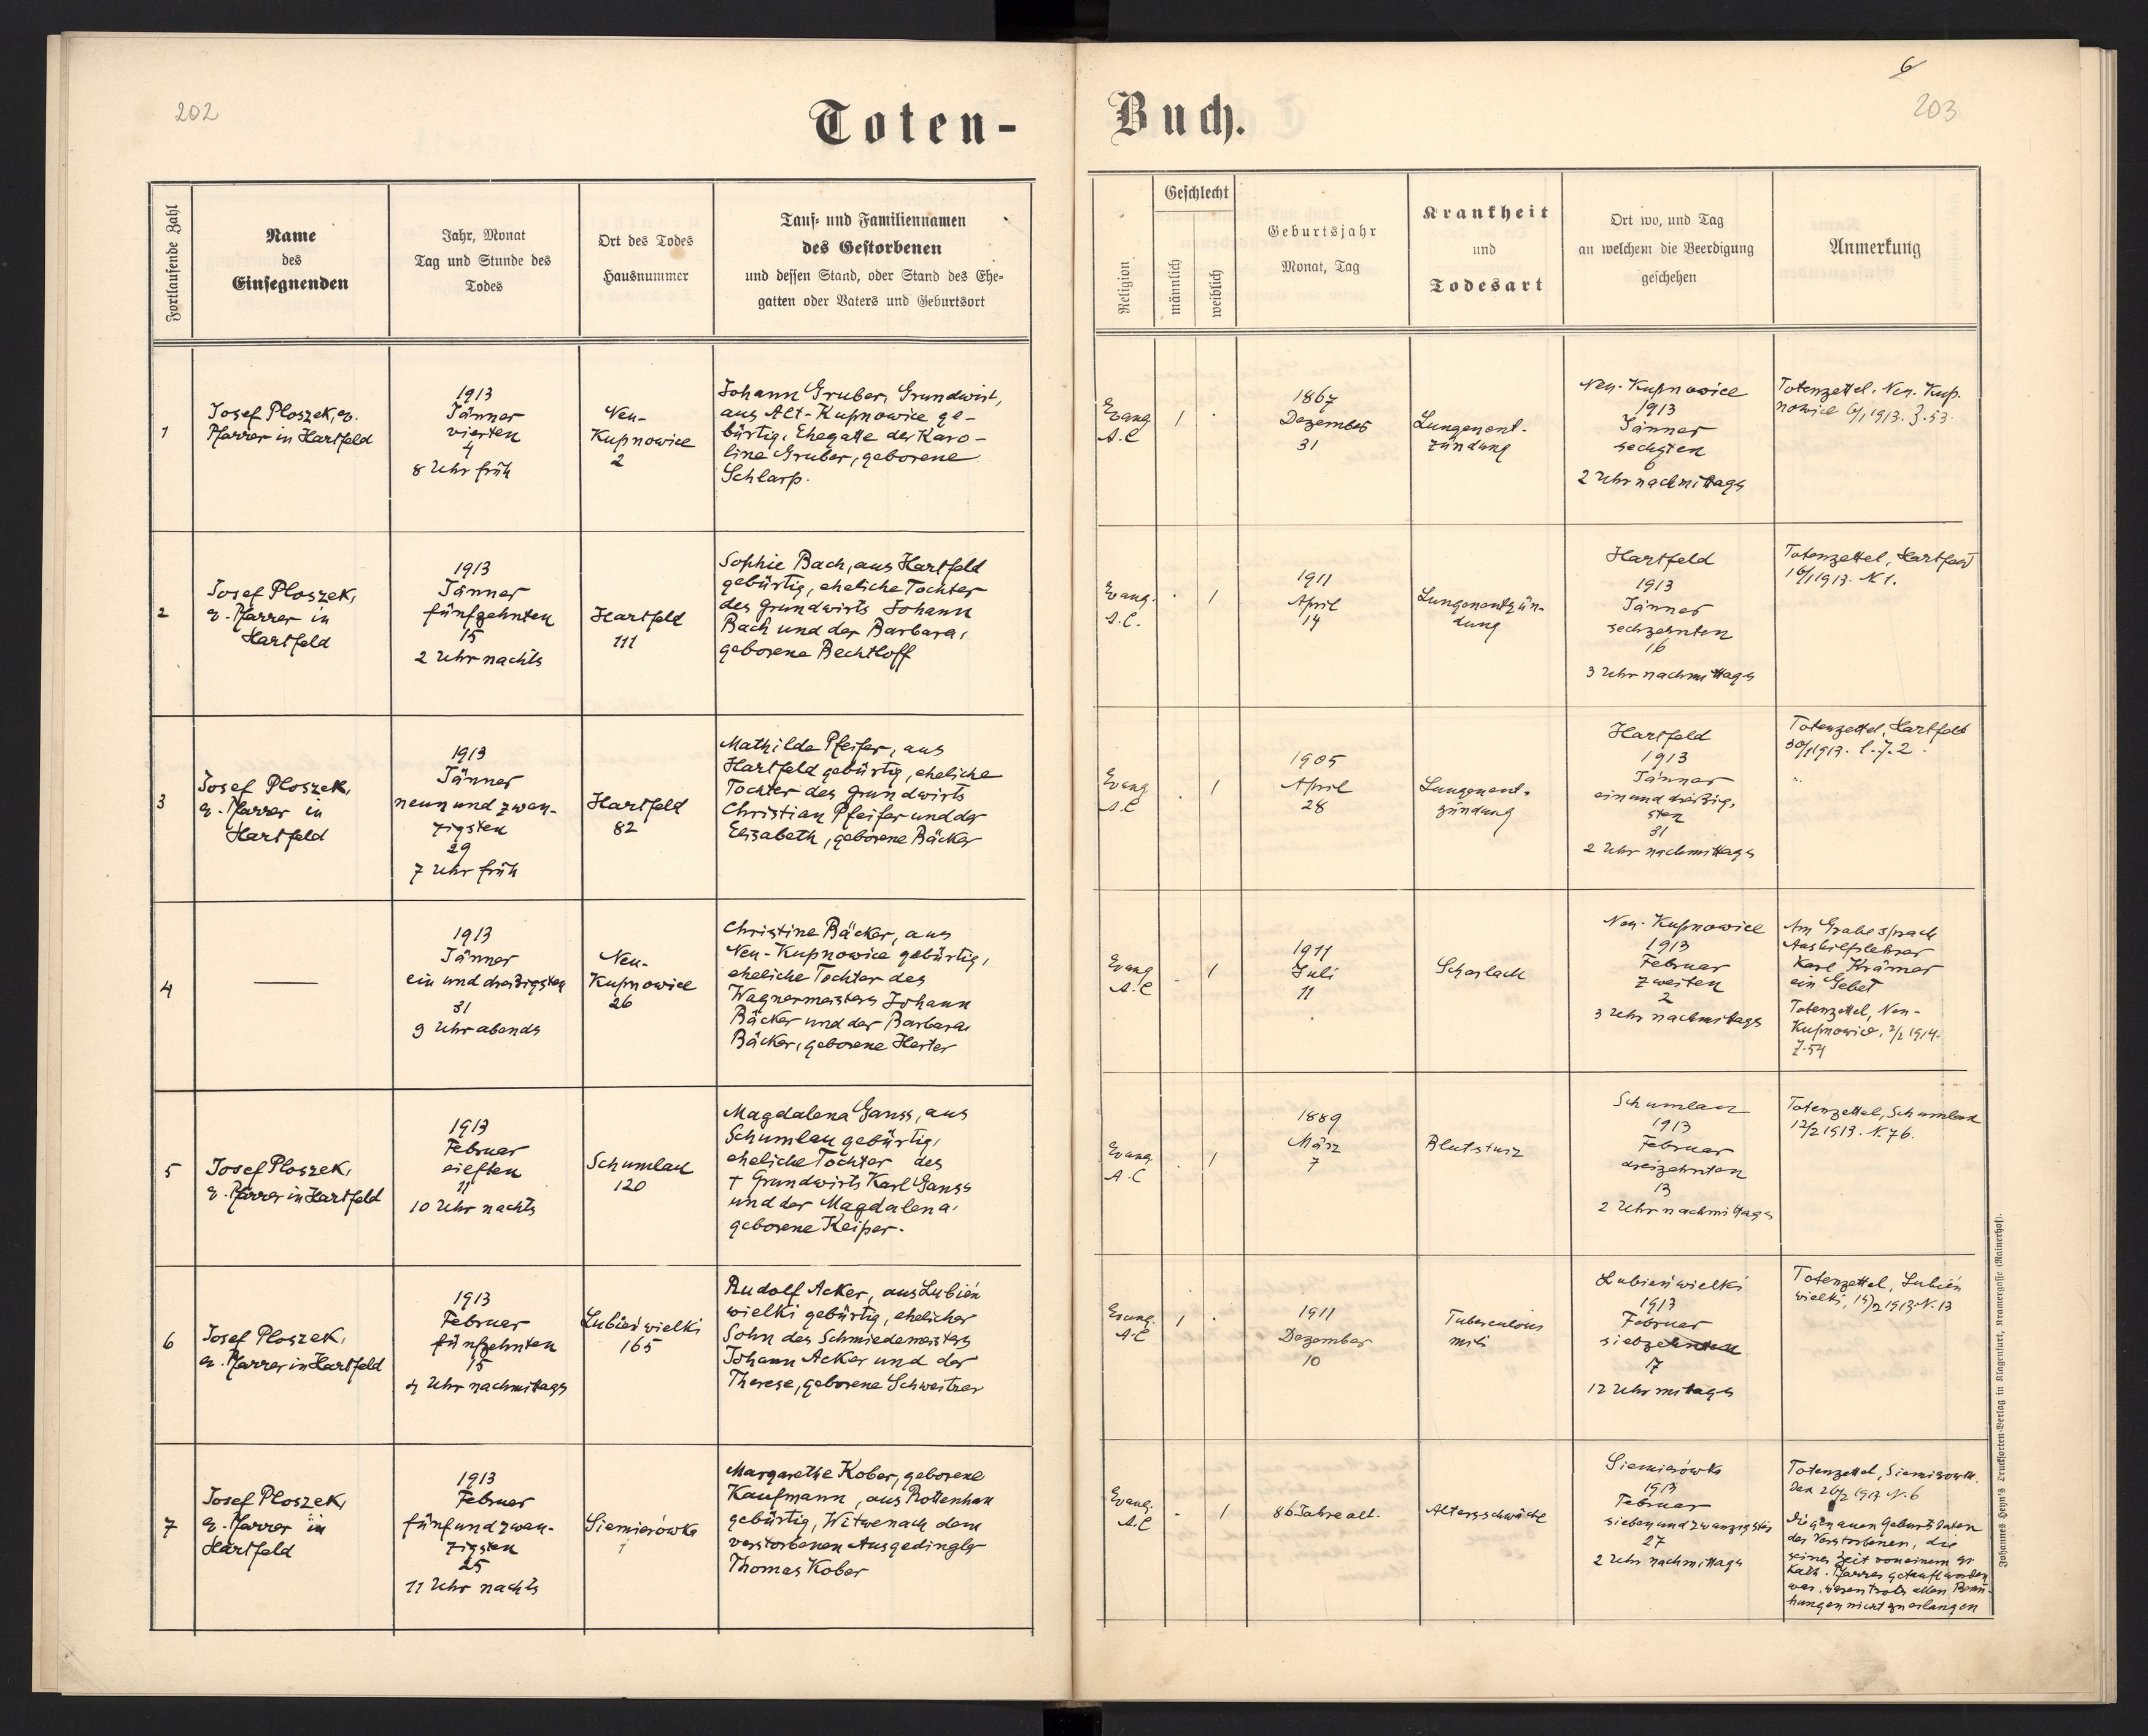 202
Toten-
Fortlaufende Zahl
Name
des
Einsegnenden
Jahr, Monat
Tag und Stunde des
Todes
Ort des Todes
Hausnummer
Tauf- und Familiennamen
des Gestorbenen
und dessen Stand, oder Stand des Ehe-
gatten oder Vaters und Geburtsort
1
Josef Ploszek, ev.
Pfarrer in Hartfeld
1913
Jänner
vierten
4
8 Uhr früh
Neu-
Kupnowice
2
Johann Gruber, Grundwirt,
aus Alt-Kupnowice ge-
bürtig, Ehegatte der Karo-
line Gruber, geborene
Schlarp.
2
Josef Ploszek,
ev. Pfarrer in
Hartfeld
1913
Jänner
fünfzehnten
15
2 Uhr nachts
Hartfeld
111
Sophie Bach, aus Hartfeld
gebürtig, eheliche Tochter
des Grundwirts Johann
Bach und der Barbara,
geborene Bechtloff
3
Josef Ploszek,
ev. Pfarrer in
Hartfeld
1913
Jänner
neunundzwan-
zigsten
29
7 Uhr früh
Hartfeld
82
Mathilde Pfeifer, aus
Hartfeld gebürtig, eheliche
Tochter des Grundwirts
Christian Pfeifer und der
Elisabeth, geborene Bäcker
4
1913
Jänner
ein und dreißigsten
31
9 Uhr abends
Neu-
Kupnowice
26
Christine Bäcker, aus
Neu-Kupnowice gebürtig,
eheliche Tochter des
Wagnermeisters Johann
Bäcker und der Barbara
Bäcker, geborene Herter
5
Josef Ploszek,
ev. Pfarrer in Hartfeld
1913
Februar
elften
11
10 Uhr nachts
Schumlau
120
Magdalena Ganss, aus
Schumlau gebürtig,
eheliche Tochter des
† Grundwirts Karl Ganss
und der Magdalena,
geborene Keiper.
6
Josef Ploszek,
ev. Pfarrer in Hartfeld
1913
Februar
fünfzehnten
15
4 Uhr nachmitags
Lubień wielki
165
Rudolf Acker, aus Lubień
wielki gebürtig, ehelicher
Sohn des Schmiedemeisters
Johann Acker und der
Therese, geborene Schweitzer
7
Josef Ploszek,
ev. Pfarrer in
Hartfeld
1913
Februar
fünfundzwan-
zigsten
25
11 Uhr nachts
Siemierówka
1
Margarethe Kober, geborene
Kaufmann, aus Rottenhan
gebürtig, Witwe nach dem
verstorbenen Ausgedingler
Thomas Kober
6
203
Buch.
Religion
Geschlecht
männlich
weiblich
Geburtsjahr
Monat, Tag
Krankheit
und
Todesart
Ort wo, und Tag
an welchem die Beerdigung
geschehen
Anmerkung
Evang
A.C
1
1867
Dezember
31
Lungenent-
zündung
Neu-Kupnowice
1913
Jänner
sechsten
6
2 Uhr nachmittags
Totenzettel, Neu-Kup-
nowice 6/1 1913. Z. 53
Evang.
A.C.
1
1911
April
14
Lungenentzün-
dung
Hartfeld
1913
Jänner
sechzehnten
16
3 Uhr nachmittags
Totenzettel, Hartfeld
16/1 1913. N 1.
Evang
A.C
1
1905
April
28
Lungenent-
zündung
Hartfeld
1913
Jänner
einunddreißig-
sten
31
2 Uhr nachmittags
Totenzettel, Hartfeld
30/1 1913. l. J. 2
Evang
A.C
1
1911
Juli
11
Scharlach
Neu-Kupnowice
1913
Februar
zweiten
2
3 Uhr nachmitags
Am Grabe sprach
Aushilfslehrer
Karl Krämer
ein Gebet
Totenzettel, Neu-
Kupnowice, 2/2 1914.
Z. 54
Evang
A.C
1
1889
März
7
Blutsturz
Schumlau
1913
Februar
dreizehnten
13
2 Uhr nachmittags
Totenzettel, Schumlau
12/2 1913. N. 76.
Evang.
A.C
1
1911
Dezember
10
Tuberculosis
mili
Lubień wielki
1913
Februar
siebzehnten
17
12 Uhr mitags
Totenzettel, Lubień
wielki, 15/2 1913 N. 13
Evang.
A.C
1
86 Jahre alt.
Altersschwäche
Siemierówka
1913
Februar
siebenundzwanzigsten
27
2 Uhr nachmittags
Totenzettel,
den 26/2 1913 N. 6
Die genauen Geburtsdaten
der Verstorbenen, die
seiner Zeit von einem gr
kath. Pfarrer getauft worden
war, waren trotz allen Bemü-
hungen nicht zu erlangen
Johannes Heyn's Drucksorten-Verlag in Klagenfurt, Kramergasse (Rainerhof).